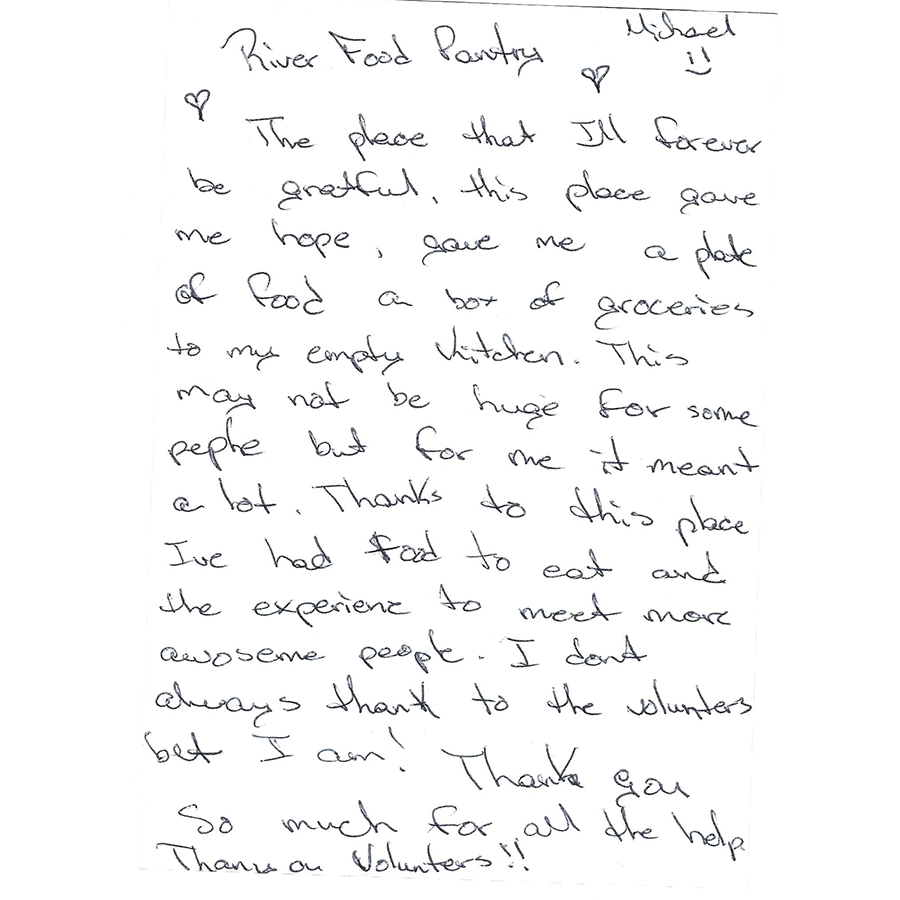 River Food Pantry Michael
The place that I'll forever
be gratful, this place gave
me hope, gave me a plate
of food a box of groceries
to my empty kitchen. This
may not be huge for some
pephe but for me it meant
a lot. Thanks to this place
Ive had food to eat and
the experienc to meet more
awoseme people. I dont
always thank to the volunters
bet I am! Thank you
So much for all the help
Thank ou Volunters!!